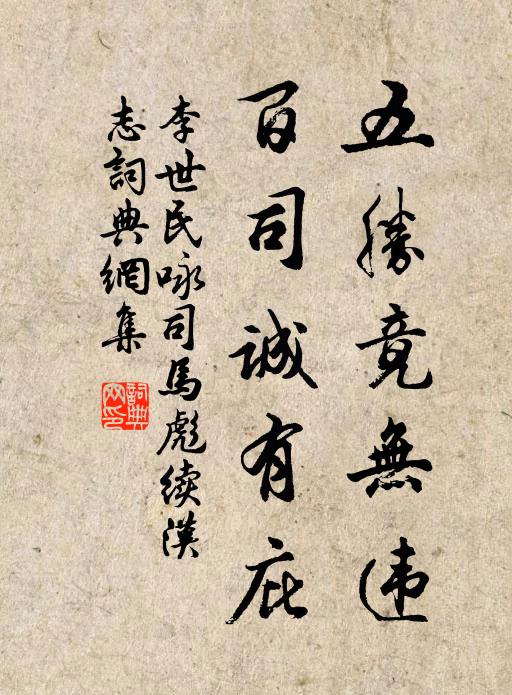 五勝竟無違
百司誠有庇
李世民咏司馬彪續漢
志詞典網集
詞典網印